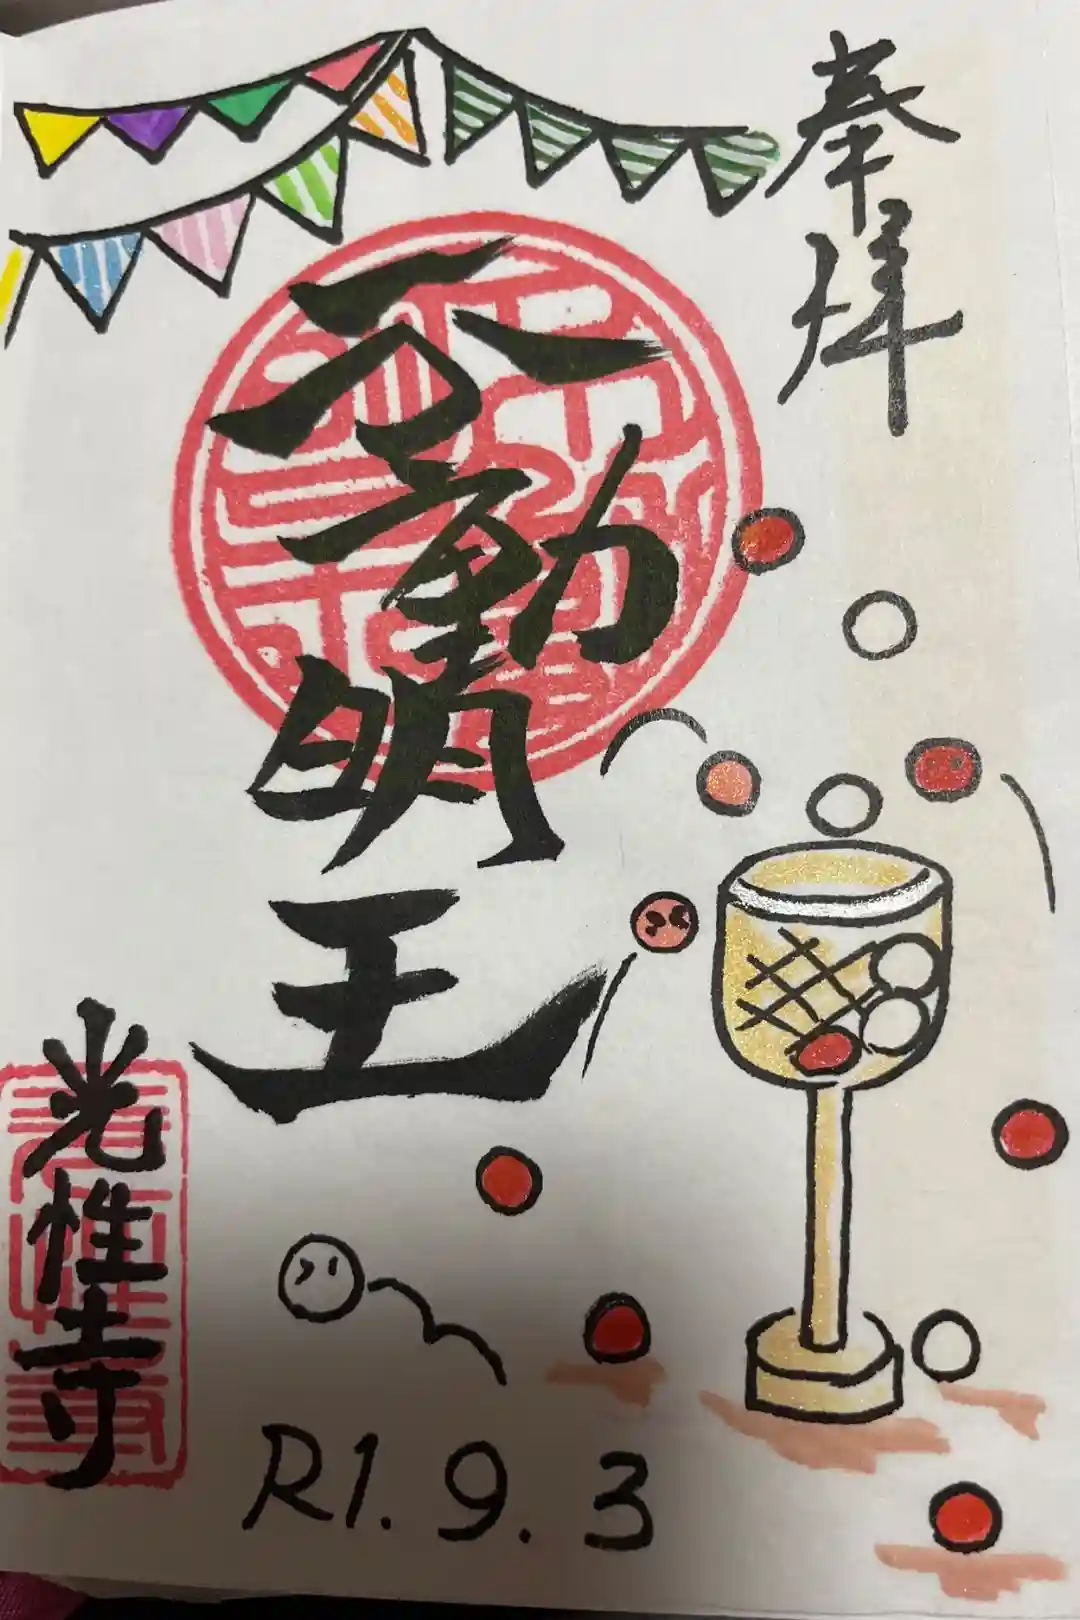 奉拝
不動明王
光性寺
R1.9.3